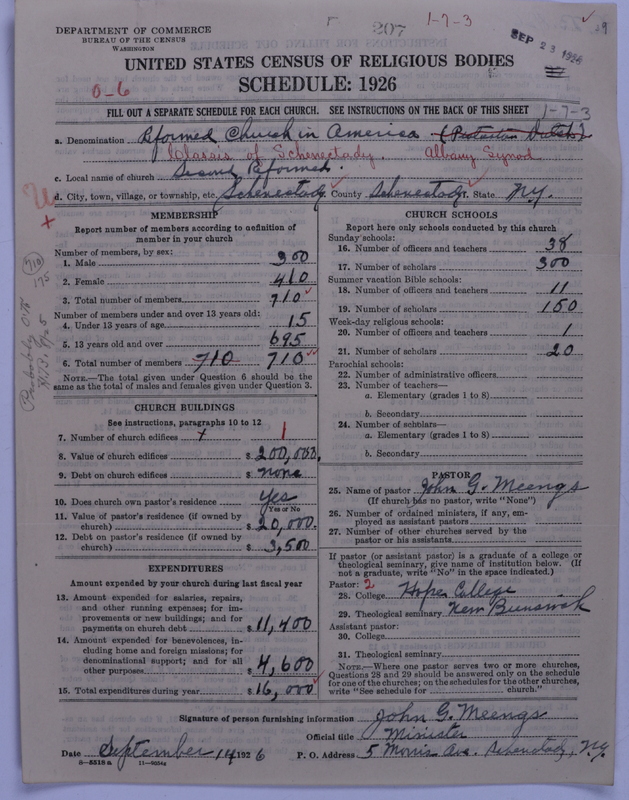 207
1-7-3
SEP 23 1926
DEPARTMENT OF COMMERCE
BUREAU OF THE CENSUS
WASHINGTON
UNITED STATES CENSUS OF RELIGIOUS BODIES
SCHEDULE: 1926
0-6
FILL OUT A SEPARATE SCHEDULE FOR EACH CHURCH. SEE INSTRUCTIONS ON THE BACK OF THIS SHEET
1-7-3
a. Denomination Reformed Church in America
Classis of Schenectady. Albany Synod
c. Local name of church Second Reformed.
d. City, town, village, or township, etc. Schenectady County Schenectady State N.Y.
MEMBERSHIP
Report number of members according to definition of member in your church
Number of members, by sex:
1. Male 300
2. Female 410
3. Total number of members 710
Number of members under and over 13 years old:
4. Under 13 years of age 15
5. 13 years old and over 695
6. Total number of members 710 710
NOTE.—The total given under Question 6 should be the
same as the total of males and females given under Question 3.
CHURCH BUILDINGS
See instructions, paragraphs 10 to 12
7. Number of church edifices 1
8. Value of church edifices $ 200,000.
9. Debt on church edifices $ none
10. Does church own pastor's residence Yes
Yes or No
11. Value of pastor's residence (if owned by
church) $ 20,000.
12. Debt on pastor's residence (if owned by
church) $ 3,500
EXPENDITURES
Amount expended by church during last fiscal year
13. Amount expended for salaries, repairs,
and other running expenses; for im-
provements or new buildings; and for
payments on church debt $ 11,400
14. Amount expended for benevolences, in-
cluding home and foreign missions; for
denominational support; and for all
other purposes $ 4,600
15. Total expenditures during year $ 16,000
CHURCH SCHOOLS
Report here only schools conducted by this church
Sunday schools:
16. Number of officers and teachers 38
17. Number of scholars 300
Summer vacation Bible schools:
18. Number of officers and teachers 11
19. Number of scholars 150
Week-day religious schools:
20. Number of officers and teachers 1
21. Number of scholars 20
Parochial schools:
22. Number of administrative officers
23. Number of teachers—
a. Elementary (grades 1 to 8)
b. Secondary
24. Number of scholars—
a. Elementary (grades 1 to 8)
b. Secondary
PASTOR
25. Name of pastor John G. Meengs
(If church has no pastor, write "None")
26. Number of ordained ministers, if any, em-
ployed as assistant pastors
27. Number of other churches served by the
pastor or his assistants
If pastor (or assistant pastor) is a graduate of a college or
theological seminary, give name of institution below. (If
not a graduate, write "No" in the space indicated.)
Pastor: 2
28. College Hope College
29. Theological seminary New Brunswick
Assistant pastor:
30. College
31. Theological seminary
NOTE.—Where one pastor serves two or more churches,
Questions 28 and 29 should be answered only on the schedule
for one of the churches; on the schedules for the other churches,
write "See schedule for church."
Signature of person furnishing information John G. Meengs
Official title Minister
Date September 14 1926 P. O. Address 5 Morris Ave. Schenectady, N.Y.
8-5518 a